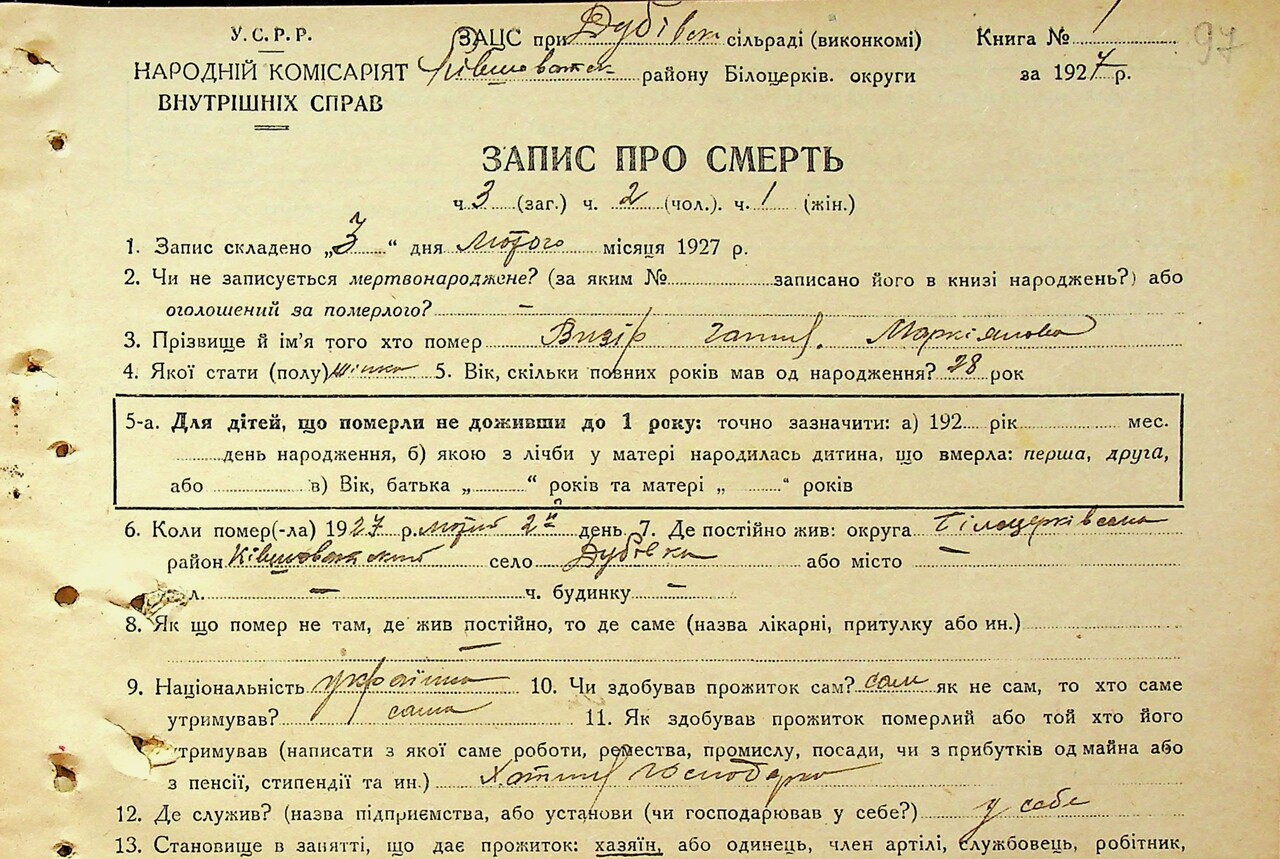 У.С.Р.Р.
НАРОДНІЙ КОМІСАРІЯТ
ВНУТРІШНІХ СПРАВ
ЗАЦС при Дубівск сільраді (виконкомі)
району Білоцерків. округи
Книга № 1
за 1927 р.
97
ЗАПИС ПРО СМЕРТЬ
ч. 3 (заг.) ч. 2 (чол.). ч. 1 (жін.)
1. Запис складено „3“ дня лютого місяця 1927 р.
2. Чи не записується мертвонароджене? (за яким № записано його в книзі народжень?) або
оголошений за померлого? –
3. Прізвище й ім'я того хто помер Визір Маркіянова
4. Якої стати (полу) жінка 5. Вік, скільки повних років мав од народження? 28 рок
5-а. Для дітей, що померли не доживши до 1 року: точно зазначити: а) 192 рік мес.
день народження, б) якою з лічби у матері народилась дитина, що вмерла: перша, друга,
або в) Вік, батька „ “ років та матері „ “ років
6. Коли помер(-ла) 1927 р. лютий 2 день 7. Де постійно жив: округа Білоцерківська
район село Дубівка або місто –
л. – ч. будинку –
8. Як що помер не там, де жив постійно, то де саме (назва лікарні, притулку або ин.)
–
9. Національність українка 10. Чи здобував прожиток сам? сам як не сам, то хто саме
утримував? сама 11. Як здобував прожиток померлий або той хто його
утримував (написати з якої саме роботи, ремества, промислу, посади, чи з прибутків од майна або
з пенсії, стипендії та ин.) господарка
12. Де служив? (назва підприємства, або установи (чи господарював у себе?) у себе
13. Становище в занятті, що дає прожиток: хазяїн, або одинець, член артілі, службовець, робітник,